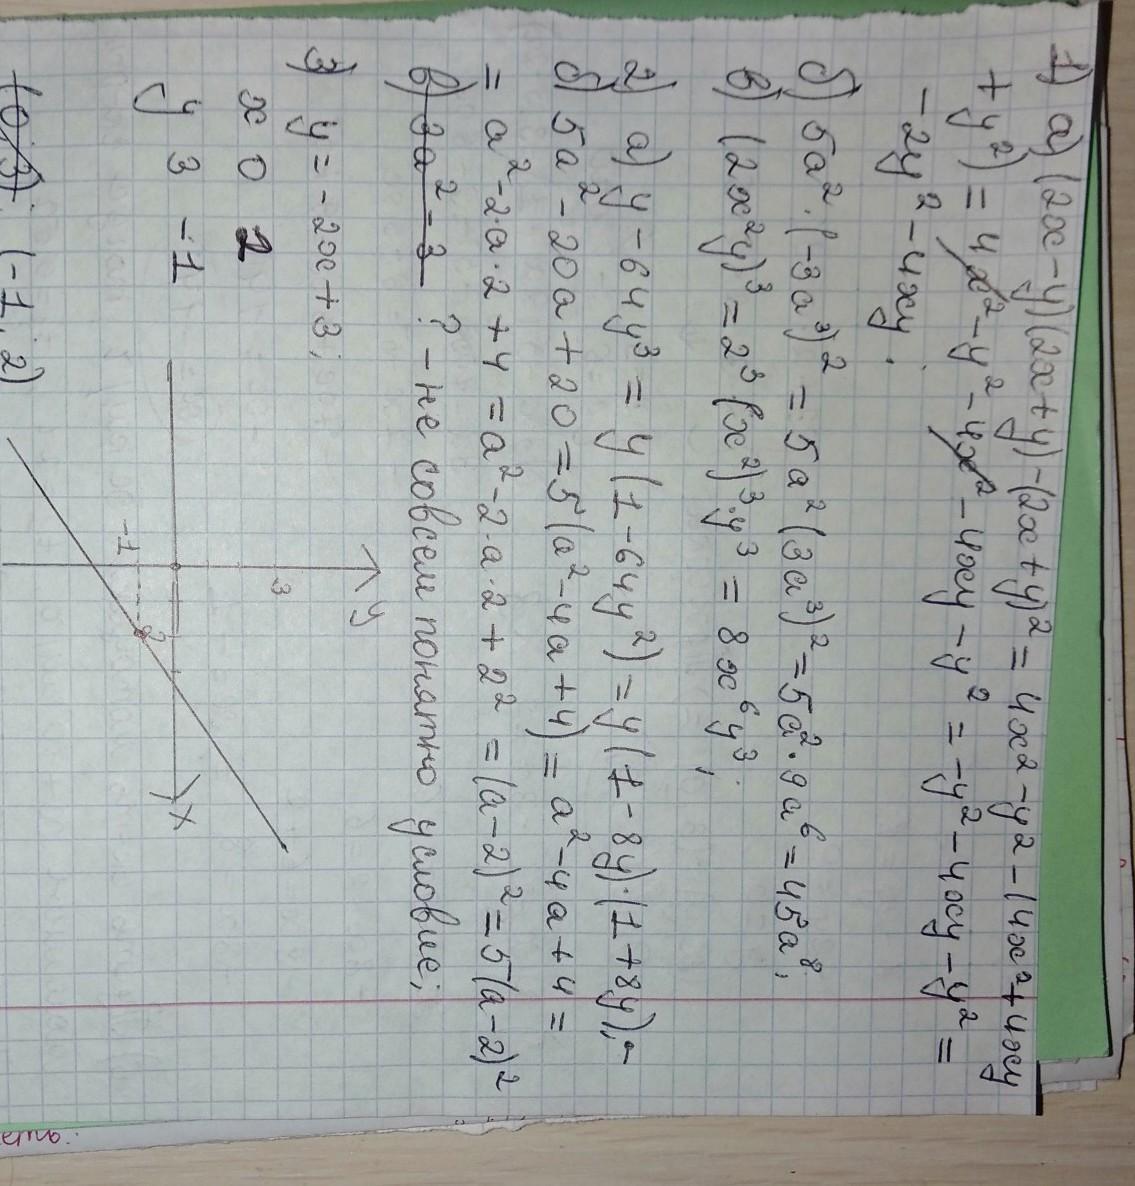 1) а) (2x-y)(2x+y)-(2x+y)² = 4x2-y²-(4x²+4xy
+y²) = 4x²-y²-4x²-4xy-y² = -y²-4xy-y² =
-2y²-4xy.
б) 5a²·(-3a³)² = 5a²(3a³)² = 5a²·9a⁶ = 45a⁸;
в) (2x²y)³ = 2³(x²)³·y³ = 8x⁶y³;
2) а) y-64y³ = y(1-64y²) = y(1-8y)·(1+8y),
б) 5a²-20a+20 = 5(a²-4a+4) = a²-4a+4 =
= a²-2·a·2+4 = a²-2·a·2+2² = (a-2)² = 5(a-2)²
в) 3a²-3 ? - не совсем понятно условие;
3) y = -2x+3;
x 0 2
y 3 -1
(0; 3); (-1, 2)
y
3
-1
2
x
еть.